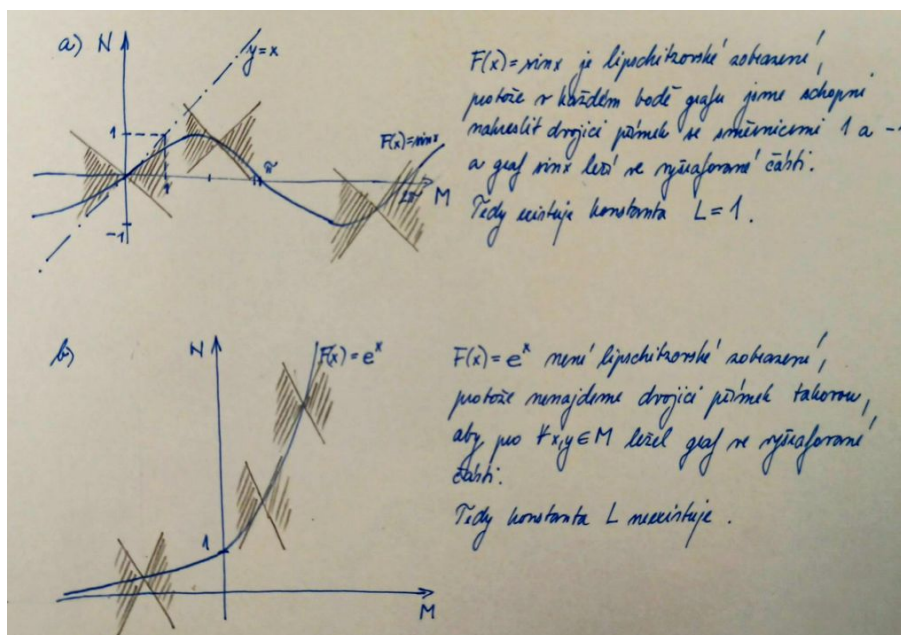 a) N
y=x
F(x)=sinx je lipschitzovské zobrazení,
protože v každém bodě grafu jsme schopni
nakreslit dvojici přímek se směrnicemi 1 a -
a graf sinx leží ve vyšrafované části.
Tedy existuje konstanta L=1.
1
F(x)=sinx
π
1
2π
M
-1
b) N
F(x)=e^x
F(x)=e^x není lipschitzovské zobrazení,
protože nenajdeme dvojici přímek takovou,
aby pro ∀x,y∈M ležel graf ve vyšrafované
části.
Tedy konstanta L neexistuje.
1
M